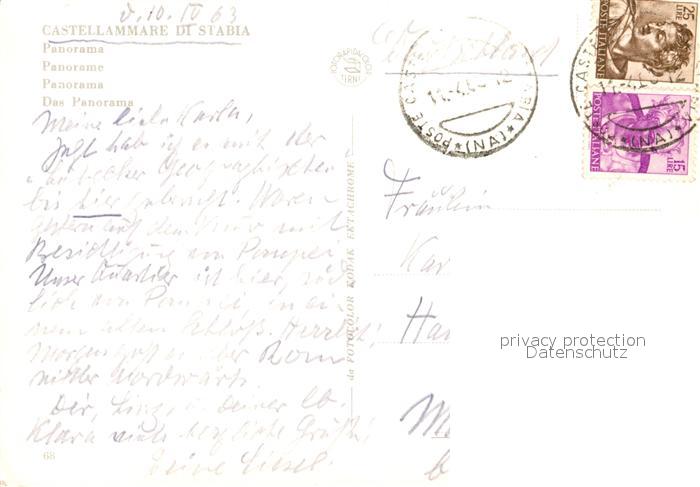 d. 10. IV 63
CASTELLAMMARE DI STABIA
Panorama
Panorame
Panorama
Das Panorama
Meine liebe Karla,
Jetzt hab ich es mit der
bis hier gebracht. Waren
gestern auf dem mit
Besichtigung von Pompei.
Unser Quartier ist hier, süd-
lich von Pompei, in ei-
nem alten Schloß. Herrlich!
Morgen geht es über Rom
wieder nordwärts.
Dir, u. Deiner lb.
Klara viele herzliche Grüße,
Deine Liesel.
68
da FOTOCOLOR KODAK EKTACHROME
Deutschland
POSTE ITALIANE
25 LIRE
POSTE ITALIANE
15 LIRE
Fräulein
Kar
Ha
M
b
privacy protection
Datenschutz